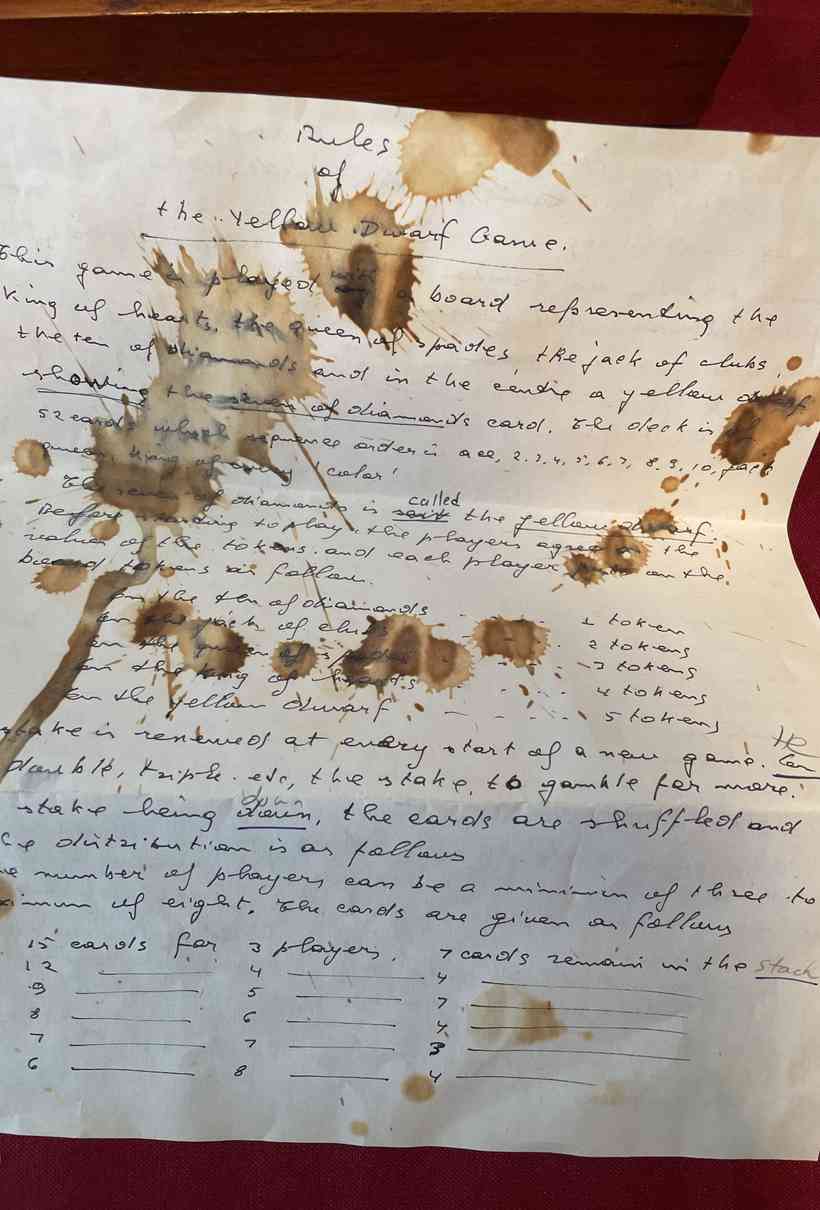 Rules
of
the Yellow Dwarf Game.
This game is played with a board representing the
King of hearts, the queen of spades, the jack of clubs,
the ten of diamonds and in the centre a yellow dwarf
showing the seven of diamonds card. The deck is of
52 cards which sequence order is ace, 2, 3, 4, 5, 6, 7, 8, 9, 10, jack
queen, King of every 'color'
The seven of diamonds is called the yellow dwarf.
Before starting to play, the players agree on the
value of the tokens and each player on the
board tokens as follow.
on the ten of diamonds 1 token
on the jack of clubs 2 tokens
on the queen of spades 3 tokens
on the King of hearts 4 tokens
on the yellow dwarf - - - - 5 tokens
stake is renewed at every start of a new game.
double, triple etc, the stake, to gamble for more.
stake being down, the cards are shuffled and
distribution is as follows
number of players can be a minimum of three to
of eight. The cards are given as follows
15 cards for 3 players. 7 cards remain in the stack
12 4 4
9 5 7
8 6 4
7 7 3
6 8 4